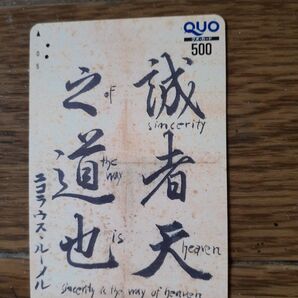 QUO
クオ・カード
500
誠者天
之道也
sincerity
heaven
of
the way
is
ニコラウス・ルーメル
sincerity is the way of heaven